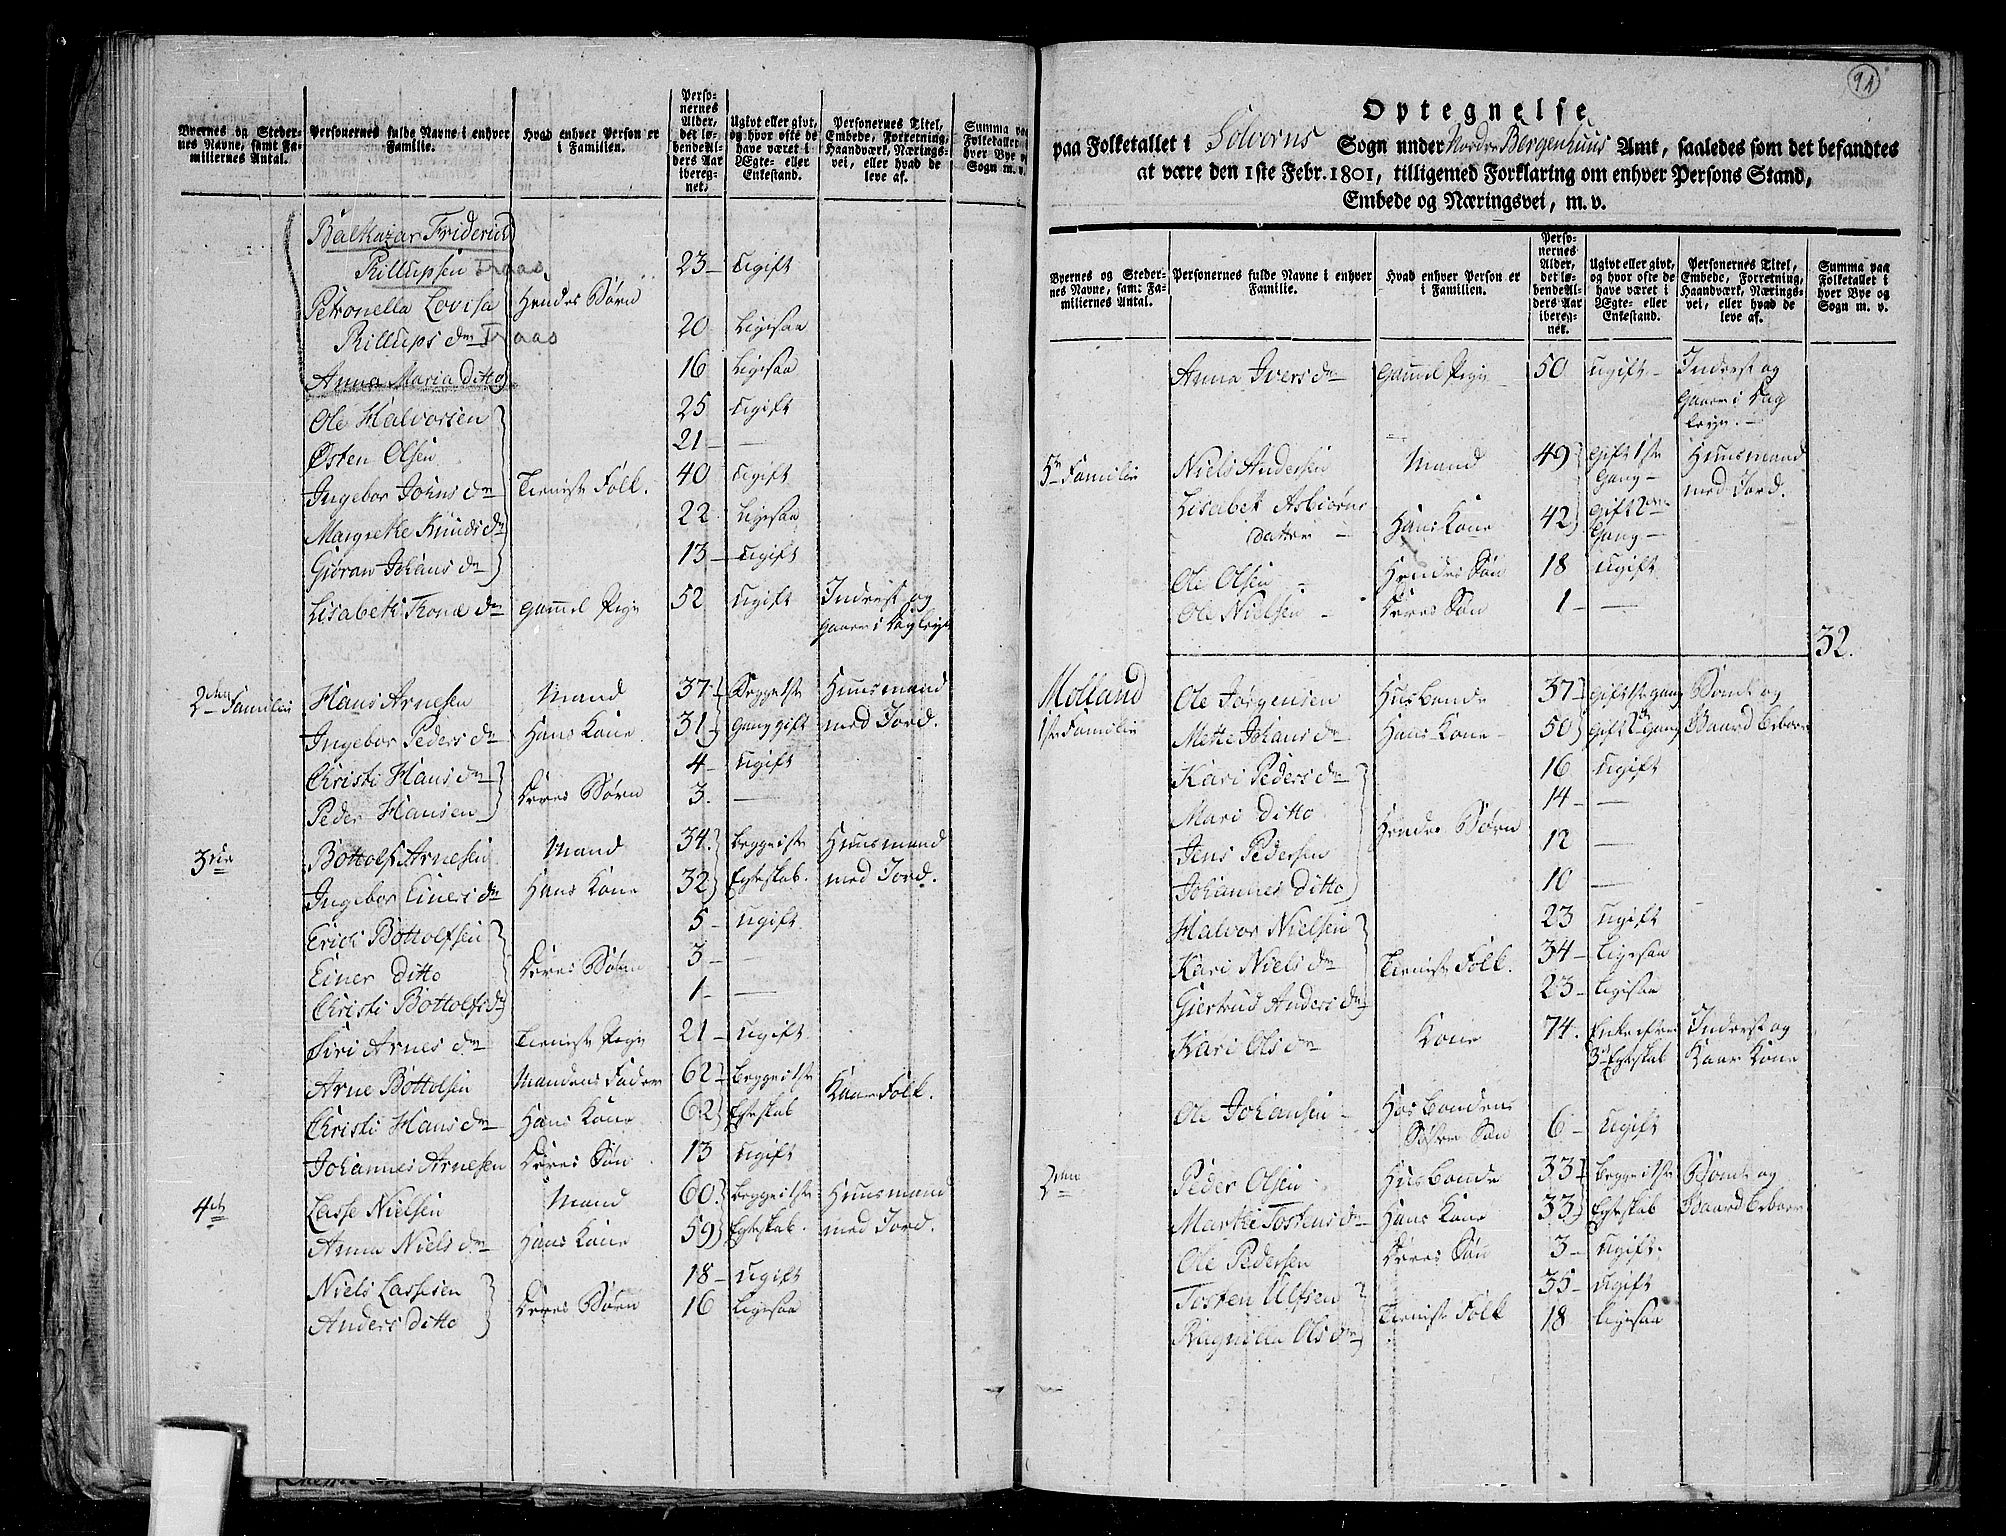 Byernes og Steder-
nes Navne, samt Fa-
miliernes Antal.
Personernes fulde Navne i enhver
Familie.
Hvad enhver Person er
i Familien.
Perso-
nernes
Alder,
det lø-
bende Al-
ders Aar
iberegnet.
Ugivt eller givt,
og hvor ofte de
have været i
Ægte- eller
Enkestand.
Personernes Titel,
Embede, Forretning,
Haandværk, Nærings-
vei, eller hvad de
leve af.
Summa paa
Folketallet i
hver Bye og
Sogn m. v.
Balthazar Friderich
Pillupsen Traas 23 - Ugift
Petronella Lovisa Hendes Børn
Pillups dr Traas 20 Ligesaa
Anna Maria Ditto 16 Ligesaa
Ole Halvorsen 25 Ugift
Østen Olsen 21 - —
Ingebor Johns dr Tieniste Folk. 40 Ugift
Margrethe Knuds dr 22 Ligesaa
Giøran Johans dr 13 - Ugift
Lisabeth Tronæ dr Gammel Pige 52 Ugift Inderst og
Gaaer i Dagleye
2den Familie Hans Arnesen Mand 37 Begge 1ste Huusmand
Ingebor Peders dr Hans Kone 31 Gang gift med Jord.
Christi Hans dr 4 - Ugift
Peder Hansen Deres Børn 3. —
3die Bottolf Arnesen Mand 34. Begge 1ste Huusmand
Ingebor Einers dr Hans Kone 32 Egteskab. med Jord.
Erick Bottolfsen 5 - Ugift.
Einer Ditto Deres Børn 3 - —
Christi Bottolfs dr 1 - —
Siri Arnes dr Tieniste Pige 21 - Ugift
Arne Bottolsen Mandens Fader 62 Begge 1ste Kaar Folk.
Christi Hans dr Hans Kone 62 Egteskab
Johannes Arnesen Deres Søn 13 Ugift
4de Lasse Nielsen Mand 60. Begge 1ste Huusmand
Anna Niels dr Hans Kone 59 Egteskab. med Jord.
Niels Lassesen 18 - Ugift
Anders Ditto Deres Børn 16 Ligesaa
91
Optegnelse
paa Folketallet i Solvorns Sogn under Nordre Bergenhuus Amt, saaledes som det befandtes
at være den 1ste Febr. 1801, tilligemed Forklaring om enhver Persons Stand,
Embede og Næringsvei, m. v.
Byernes og Steder-
nes Navne, samt Fa-
miliernes Antal.
Personernes fulde Navne i enhver
Familie.
Hvad enhver Person er
i Familien.
Perso-
nernes
Alder,
det lø-
bende Al-
ders Aar
iberegnet.
Ugivt eller givt,
og hvor ofte de
have været i
Ægte- eller
Enkestand.
Personernes Titel,
Embede, Forretning,
Haandværk, Nærings-
vei, eller hvad de
leve af.
Summa paa
Folketallet i
hver Bye og
Sogn m. v.
Anna Ivers dr Gammel Pige 50 Ugift - Inderst og
Gaaer i Dag
leye. -
5te Familie Niels Andersen Mand 49 Gift 1ste Huusmand
Gang - med Jord.
Lisabet Asbiørns
datter - Hans Kone 42 Gift 2den
Gang -
Ole Olsen - Hendes Søn 18 Ugift
Ole Nielsen - Deres Søn 1 - —
32.
Molland Ole Jørgensen Husbonde 37 Gift 1ste gang Bonde og
1ste Familie Mette Johans dr Hans Kone - 50 Gift 2de Gang Gaard Beboer
Kari Peders dr 16 Ugift
Mari Ditto 14 - —
Jens Pedersen Hendes Børn 12 —
Johannes Ditto 10 —
Halvor Nielsen 23 Ugift
Kari Niels dr Tieniste Folk. 34 - Ligesaa
Giertrud Anders dr 23 - Ligesaa
Kari Ols dr Kone 74. Enke efter Inderst og
3de Egteskab Kaar Kone
Ole Johansen - Husbondens
Søster Søn 6 - Ugift
2den Peder Olsen - Husbonde 33 Begge 1ste Bonde og
Marthe Tostens dr Hans Kone 33 Egteskab Gaard Beboer
Ole Pedersen Deres Søn 3 - Ugift.
Tosten Ulfsen 35 - Ugift
Ragnilla Ols dr Tieniste Folk 18 Ligesaa